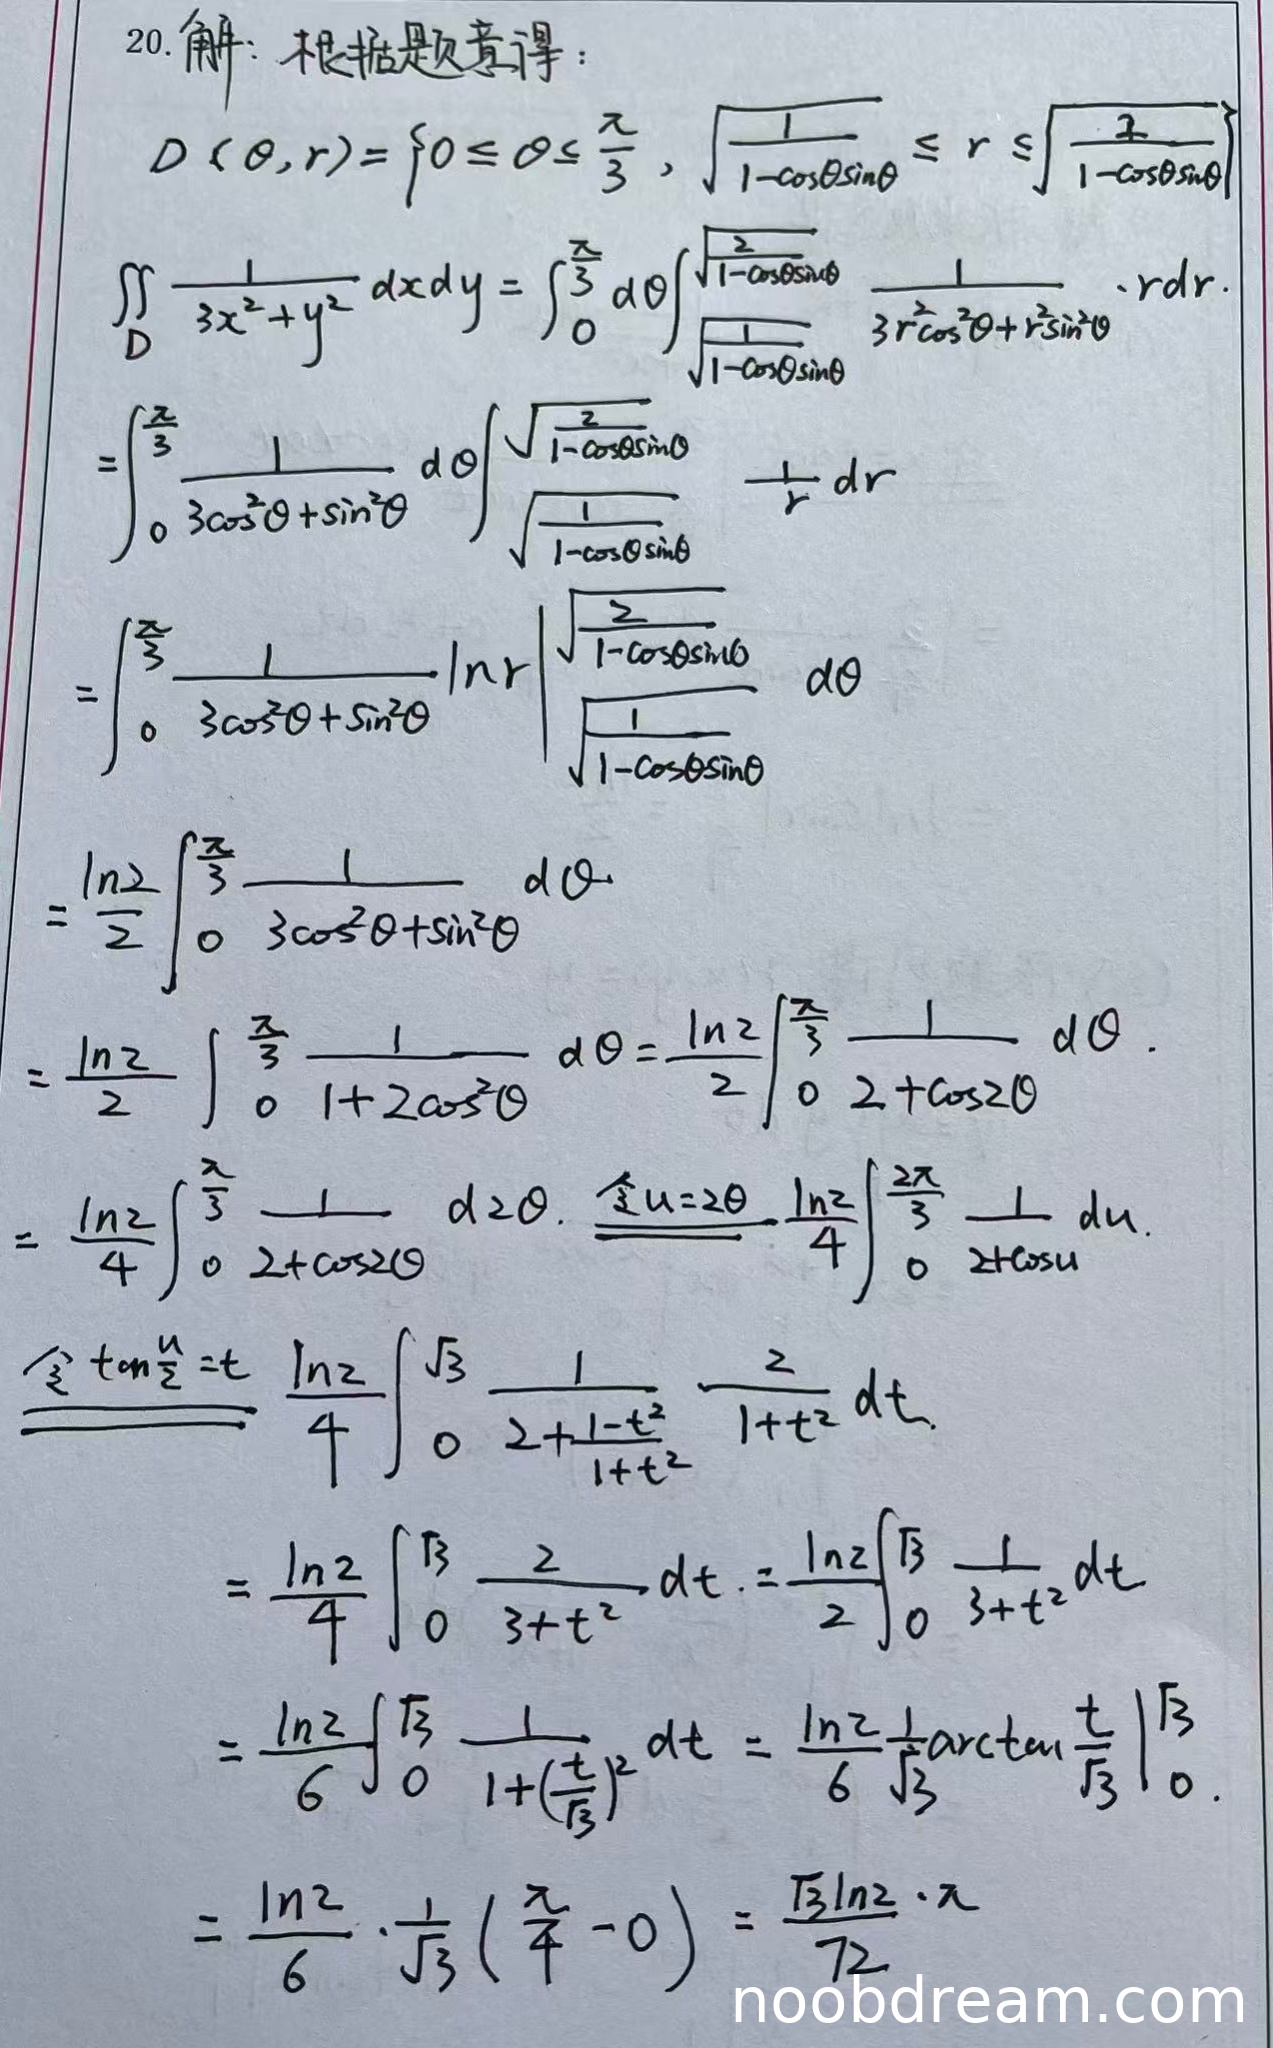 20. 解: 根据题意得:
D(θ,r)={0≤θ≤π/3, √(1/(1-cosθsinθ)) ≤ r ≤ √(2/(1-cosθsinθ))}
∬_D 1/(3x²+y²) dxdy = ∫_0^(π/3) dθ ∫_√(1/(1-cosθsinθ))^√(2/(1-cosθsinθ)) 1/(3r²cos²θ+r²sin²θ) ·rdr.
= ∫_0^(π/3) 1/(3cos²θ+sin²θ) dθ ∫_√(1/(1-cosθsinθ))^√(2/(1-cosθsinθ)) 1/r dr
= ∫_0^(π/3) 1/(3cos²θ+sin²θ) lnr |_√(1/(1-cosθsinθ))^√(2/(1-cosθsinθ)) dθ
= ln2/2 ∫_0^(π/3) 1/(3cos²θ+sin²θ) dθ.
= ln2/2 ∫_0^(π/3) 1/(1+2cos²θ) dθ = ln2/2 ∫_0^(π/3) 1/(2+cos2θ) dθ.
= ln2/4 ∫_0^(π/3) 1/(2+cos2θ) d2θ. 令u=2θ ln2/4 ∫_0^(2π/3) 1/(2+cosu) du.
令 tan(u/2)=t ln2/4 ∫_0^(√3) 1/(2+(1-t²)/(1+t²)) 2/(1+t²) dt.
= ln2/4 ∫_0^(√3) 2/(3+t²) dt. = ln2/2 ∫_0^(√3) 1/(3+t²) dt
= ln2/6 ∫_0^(√3) 1/(1+(t/√3)²) dt = ln2/6 1/√3 arctan t/√3 |_0^(√3).
= ln2/6 · 1/√3 (π/4 - 0) = √3ln2/72 ·π
noobdream.com